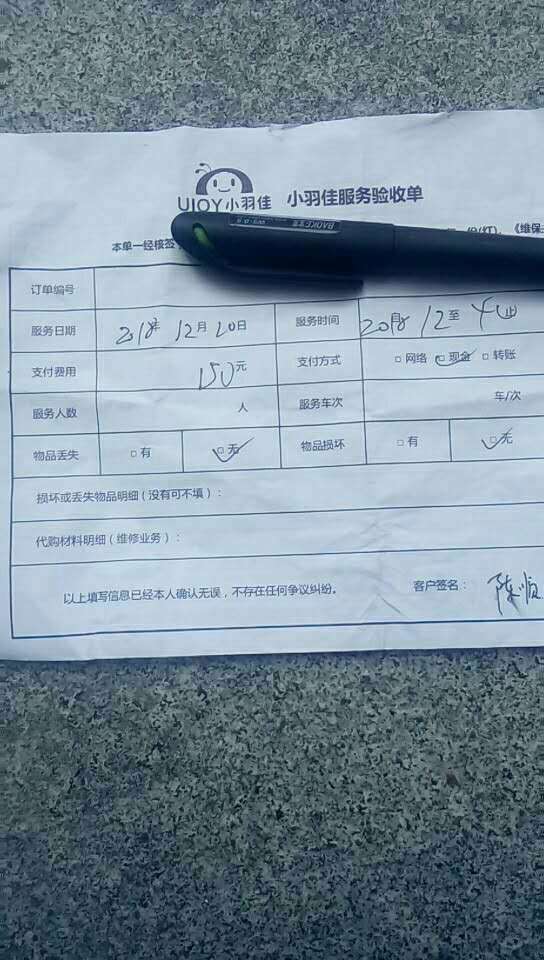 UJOY小羽佳 小羽佳服务验收单
本单一经核签
《维保
订单编号
服务日期 2018年 12月 20日 服务时间 2018 12至 4 止
支付费用 150元 支付方式 □网络 □现金 □转账
服务人数 人 服务车次 车/次
物品丢失 □有 □无 物品损坏 □有 □无
损坏或丢失物品明细（没有可不填）：
代购材料明细（维修业务）：
以上填写信息已经本人确认无误，不存在任何争议纠纷。 客户签名： 陈顺